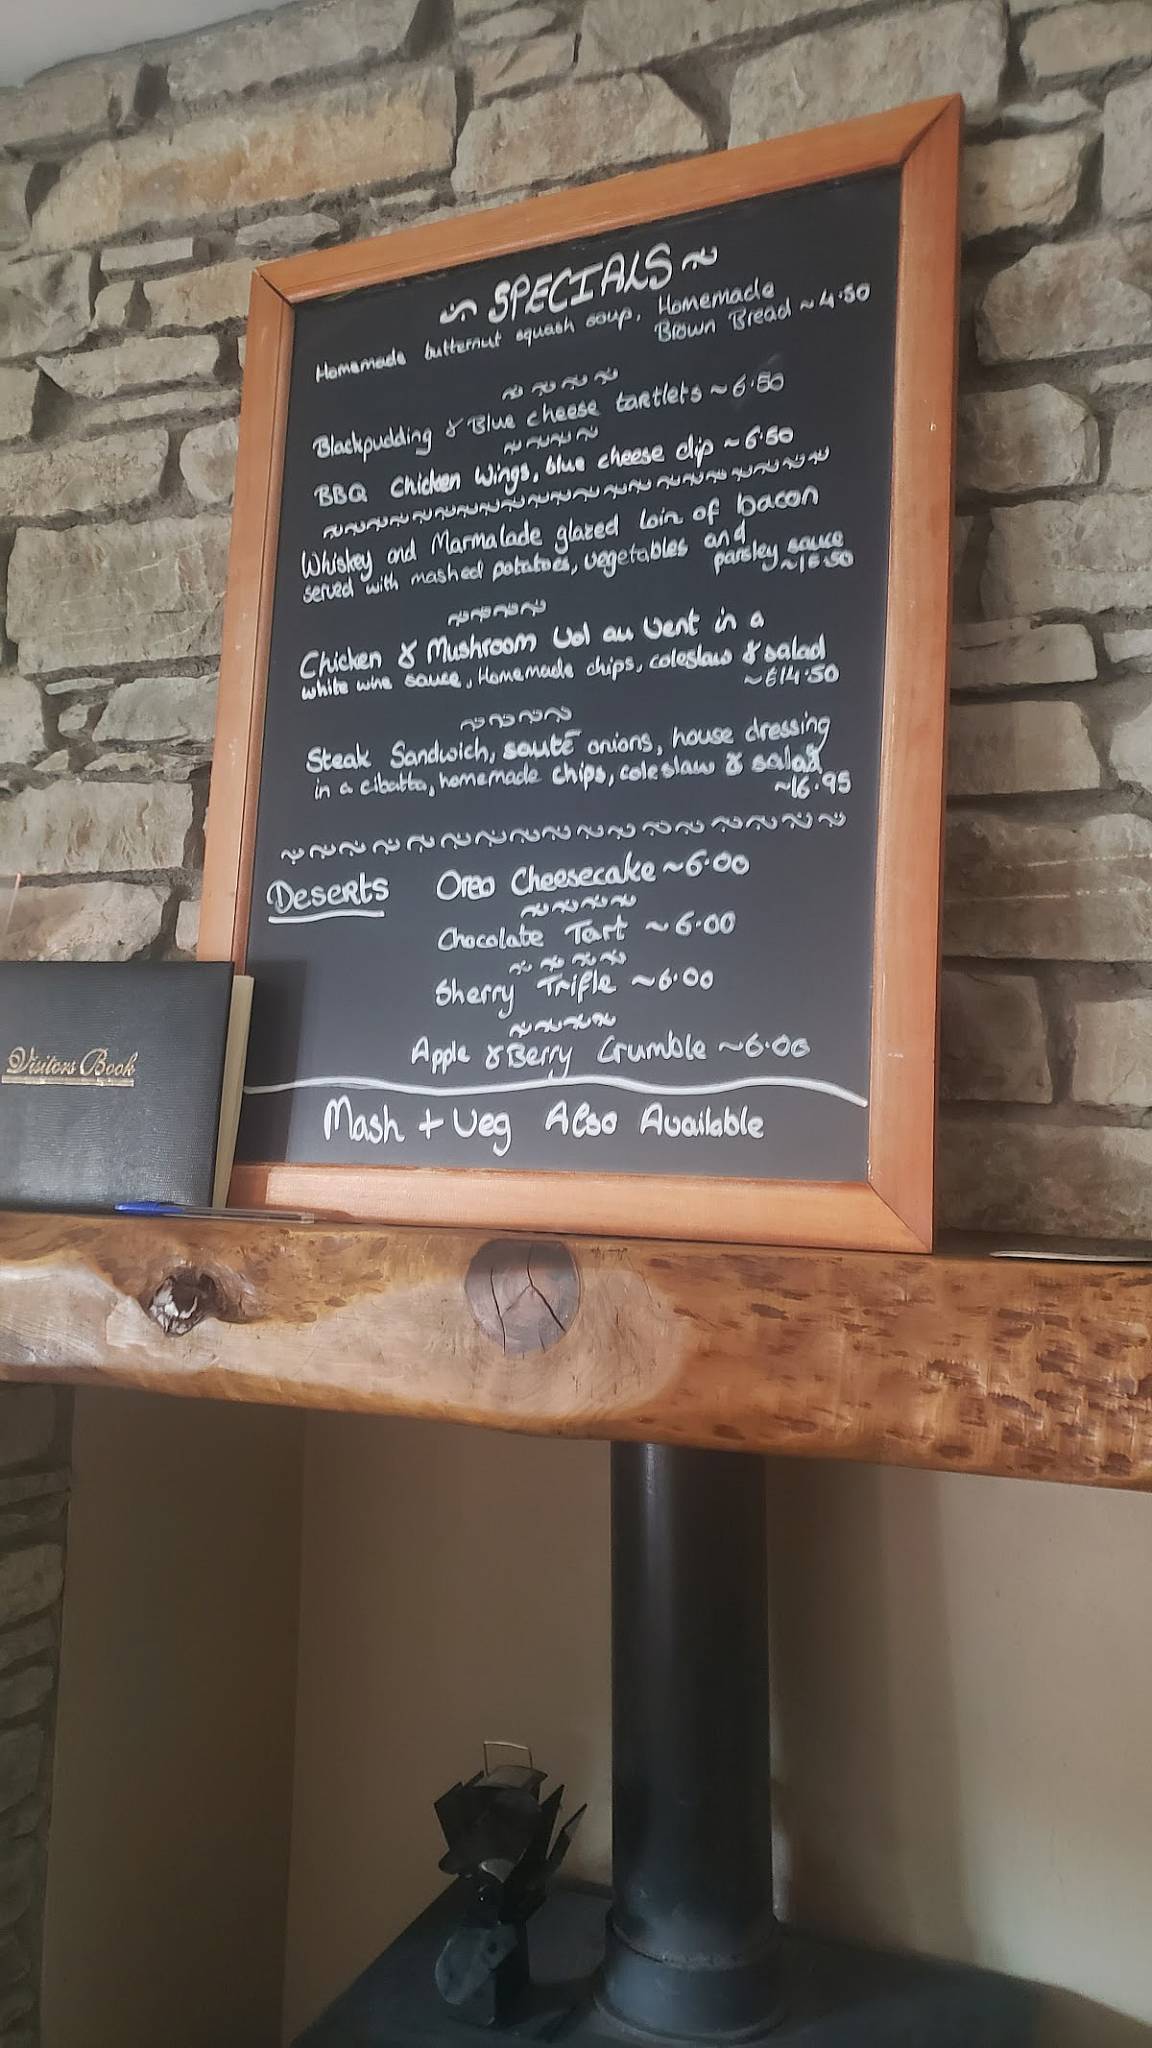 ~ SPECIALS ~
Homemade butternut squash soup, Homemade
Brown Bread ~ 4.50
Blackpudding & Blue cheese tartlets ~ 6.50
BBQ Chicken Wings, blue cheese dip ~ 6.50
Whiskey and Marmalade glazed loin of bacon
served with mashed potatoes, vegetables and
parsley sauce
~16.50
Chicken & Mushroom Vol au Vent in a
white wine sauce, Homemade chips, coleslaw & salad
~€14.50
Steak Sandwich, sauté onions, house dressing
in a cibatta, homemade chips, coleslaw & salad
~16.95
Deserts
Oreo Cheesecake ~6.00
Chocolate Tart ~6.00
Sherry Trifle ~6.00
Apple & Berry Crumble ~6.00
Mash + Veg Also Available
Visitors Book